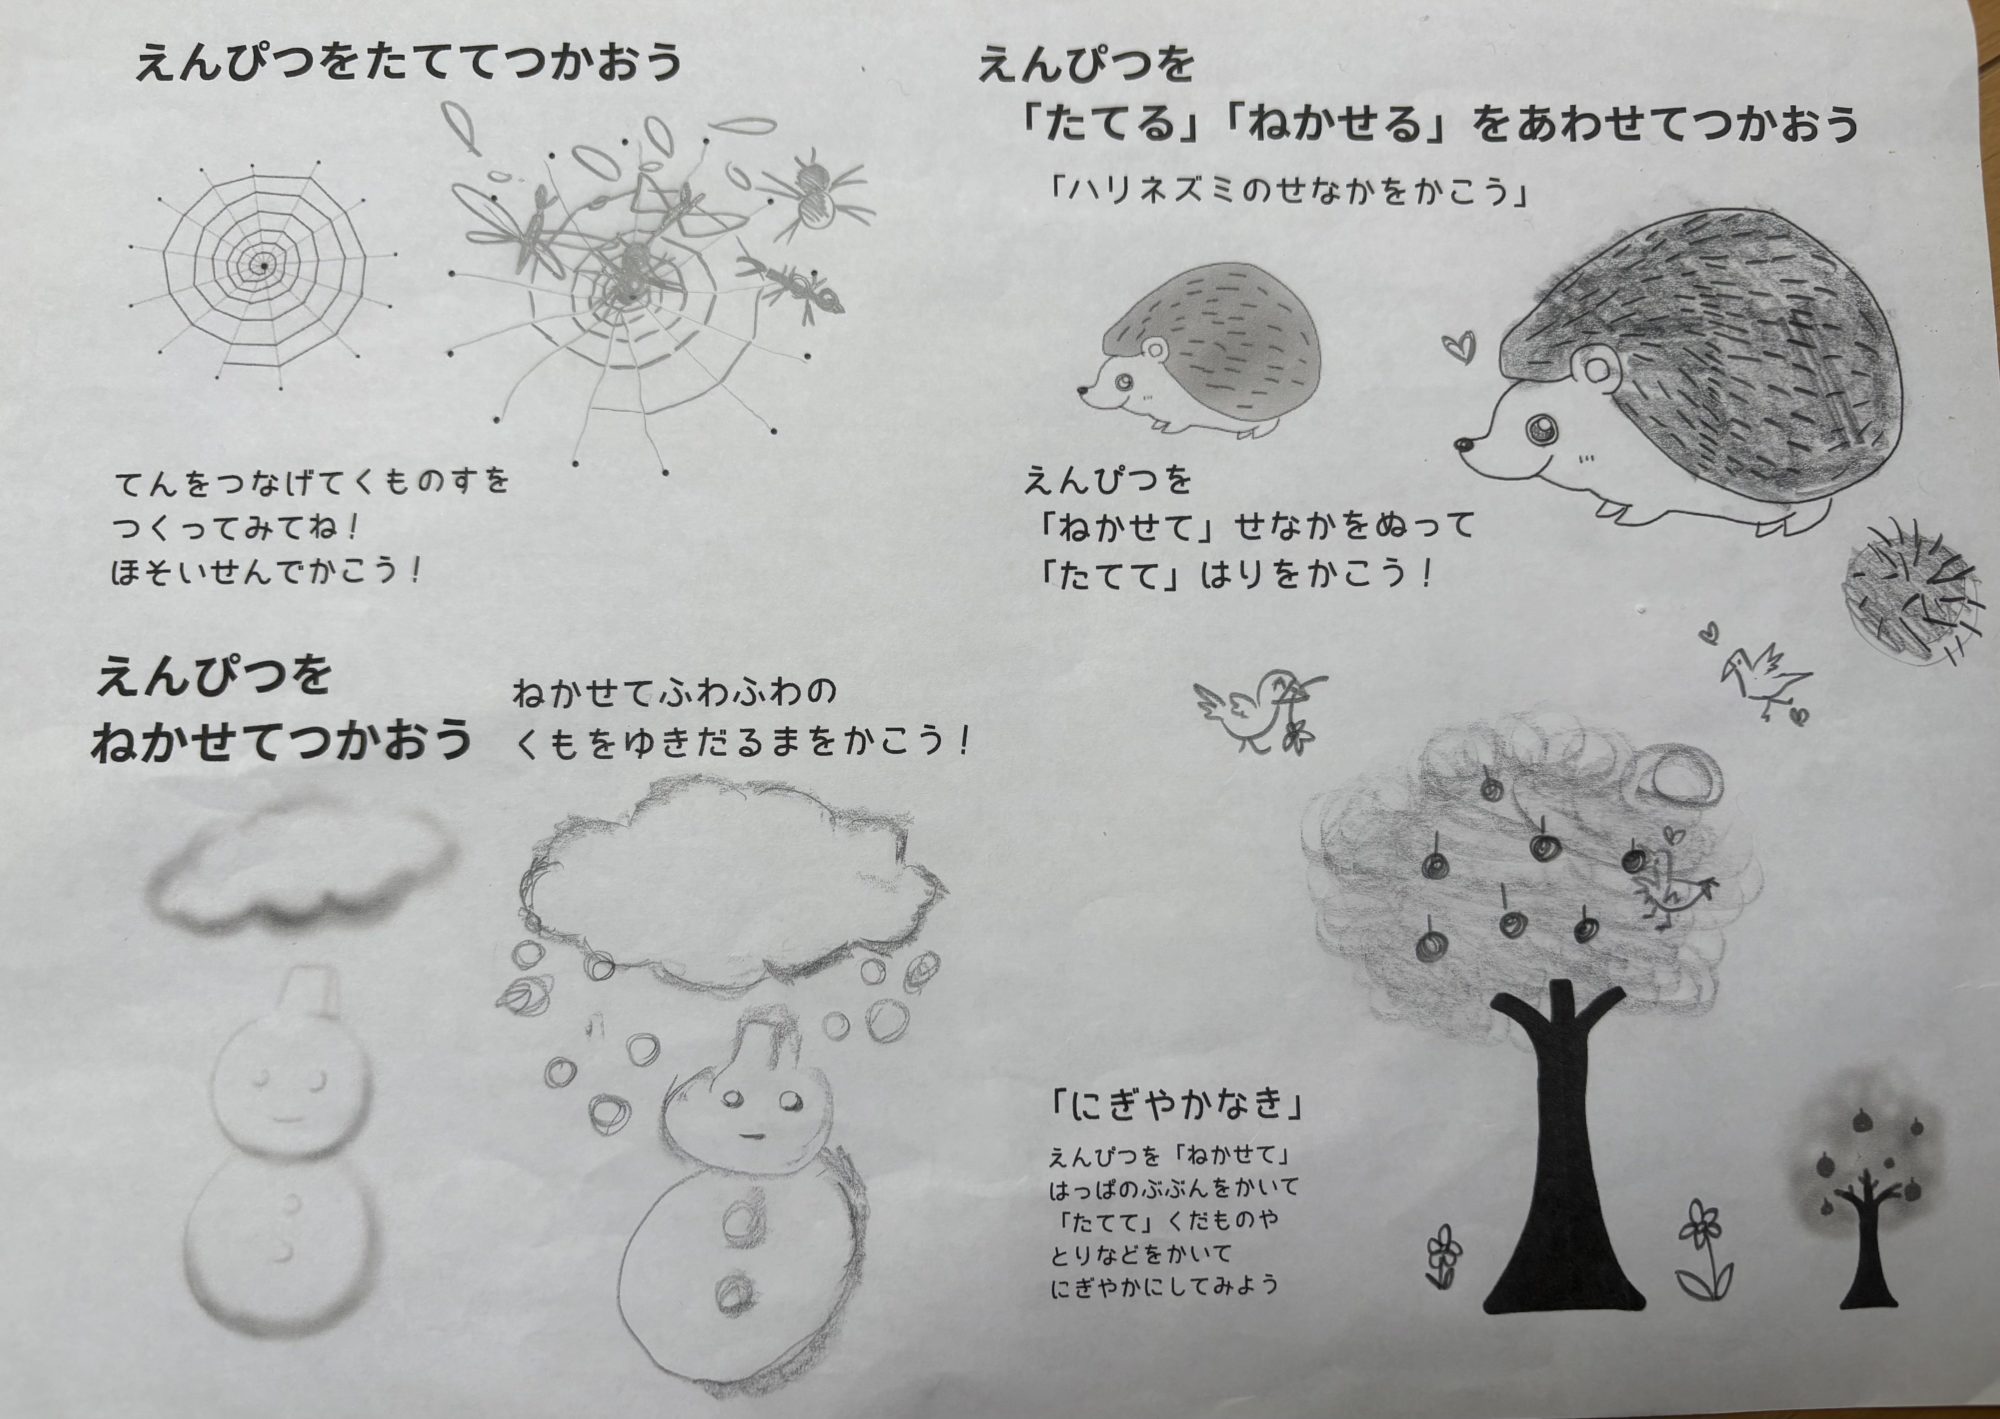 えんぴつをたててつかおう
てんをつなげてくものすを
つくってみてね！
ほそいせんでかこう！
えんぴつを
ねかせてつかおう
ねかせてふわふわの
くもをゆきだるまをかこう！
えんぴつを
「たてる」「ねかせる」をあわせてつかおう
「ハリネズミのせなかをかこう」
えんぴつを
「ねかせて」せなかをぬって
「たてて」はりをかこう！
「にぎやかなき」
えんぴつを「ねかせて」
はっぱのぶぶんをかいて
「たてて」くだものや
とりなどをかいて
にぎやかにしてみよう